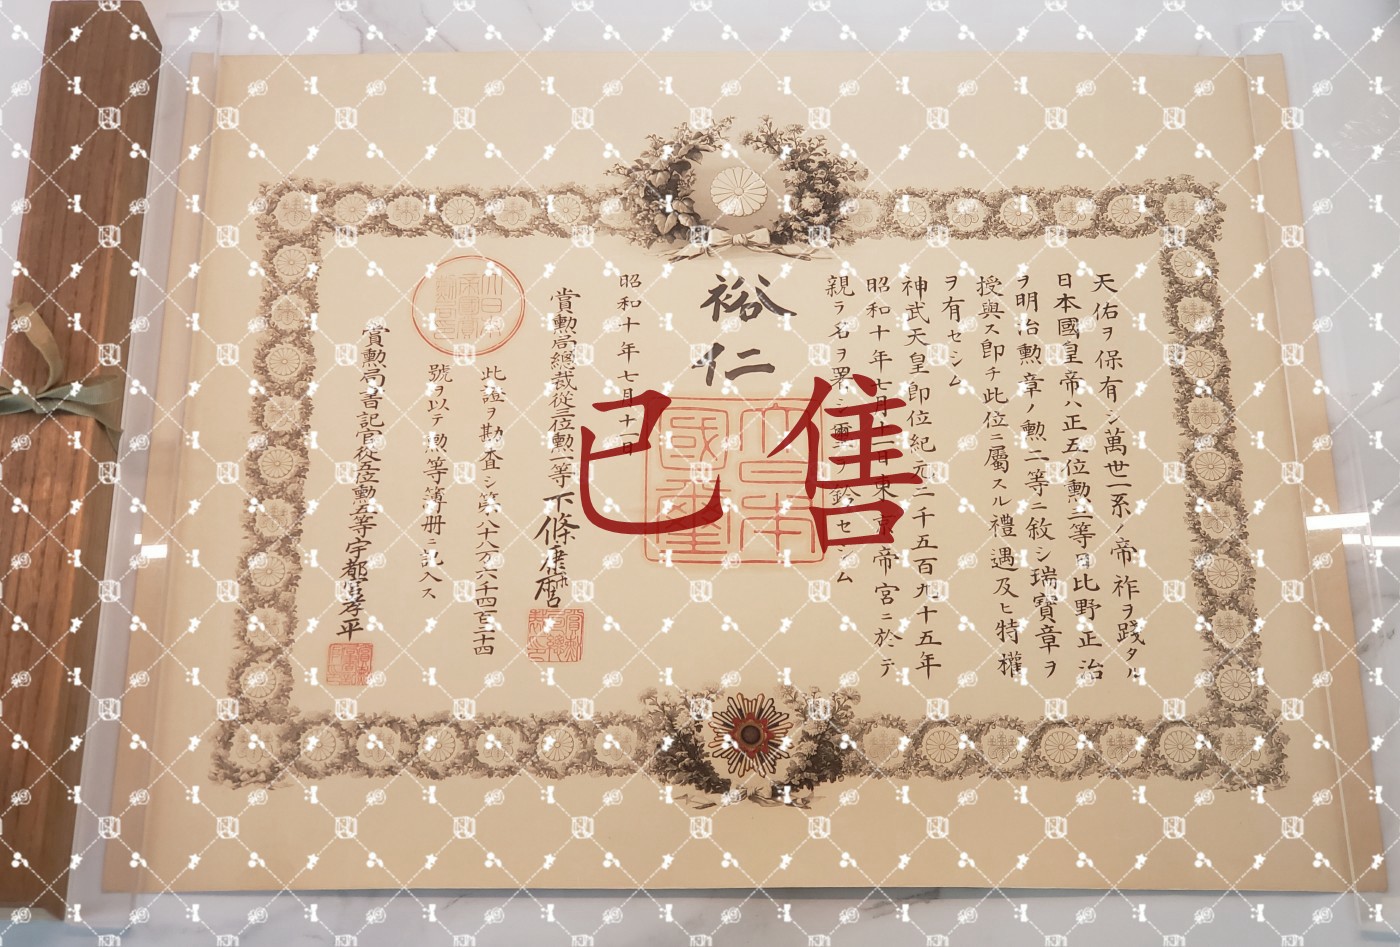 天佑ヲ保有シ萬世一系ノ帝祚ヲ踐タル
日本國皇帝ハ正五位勲三等日比野正治
ヲ明治勲章ノ勲二等ニ敘シ瑞寶章ヲ
授與ス即チ此位ニ屬スル禮遇及ヒ特權
ヲ有セシム
神武天皇即位紀元二千五百九十五年
昭和十年七月十一日東京帝宮ニ於テ
親ラ名ヲ署シ璽ヲ鈐セシム
裕仁
大日本國璽
已售
昭和十年七月十一日
賞勲局總裁從三位勲一等下條康麿
此證ヲ勘査シ第八十八万六千四百二十四
號ヲ以テ勲等簿册ニ記入ス
大日本帝國賞勲局印
賞勲局書記官從五位勲五等宇都宮孝平